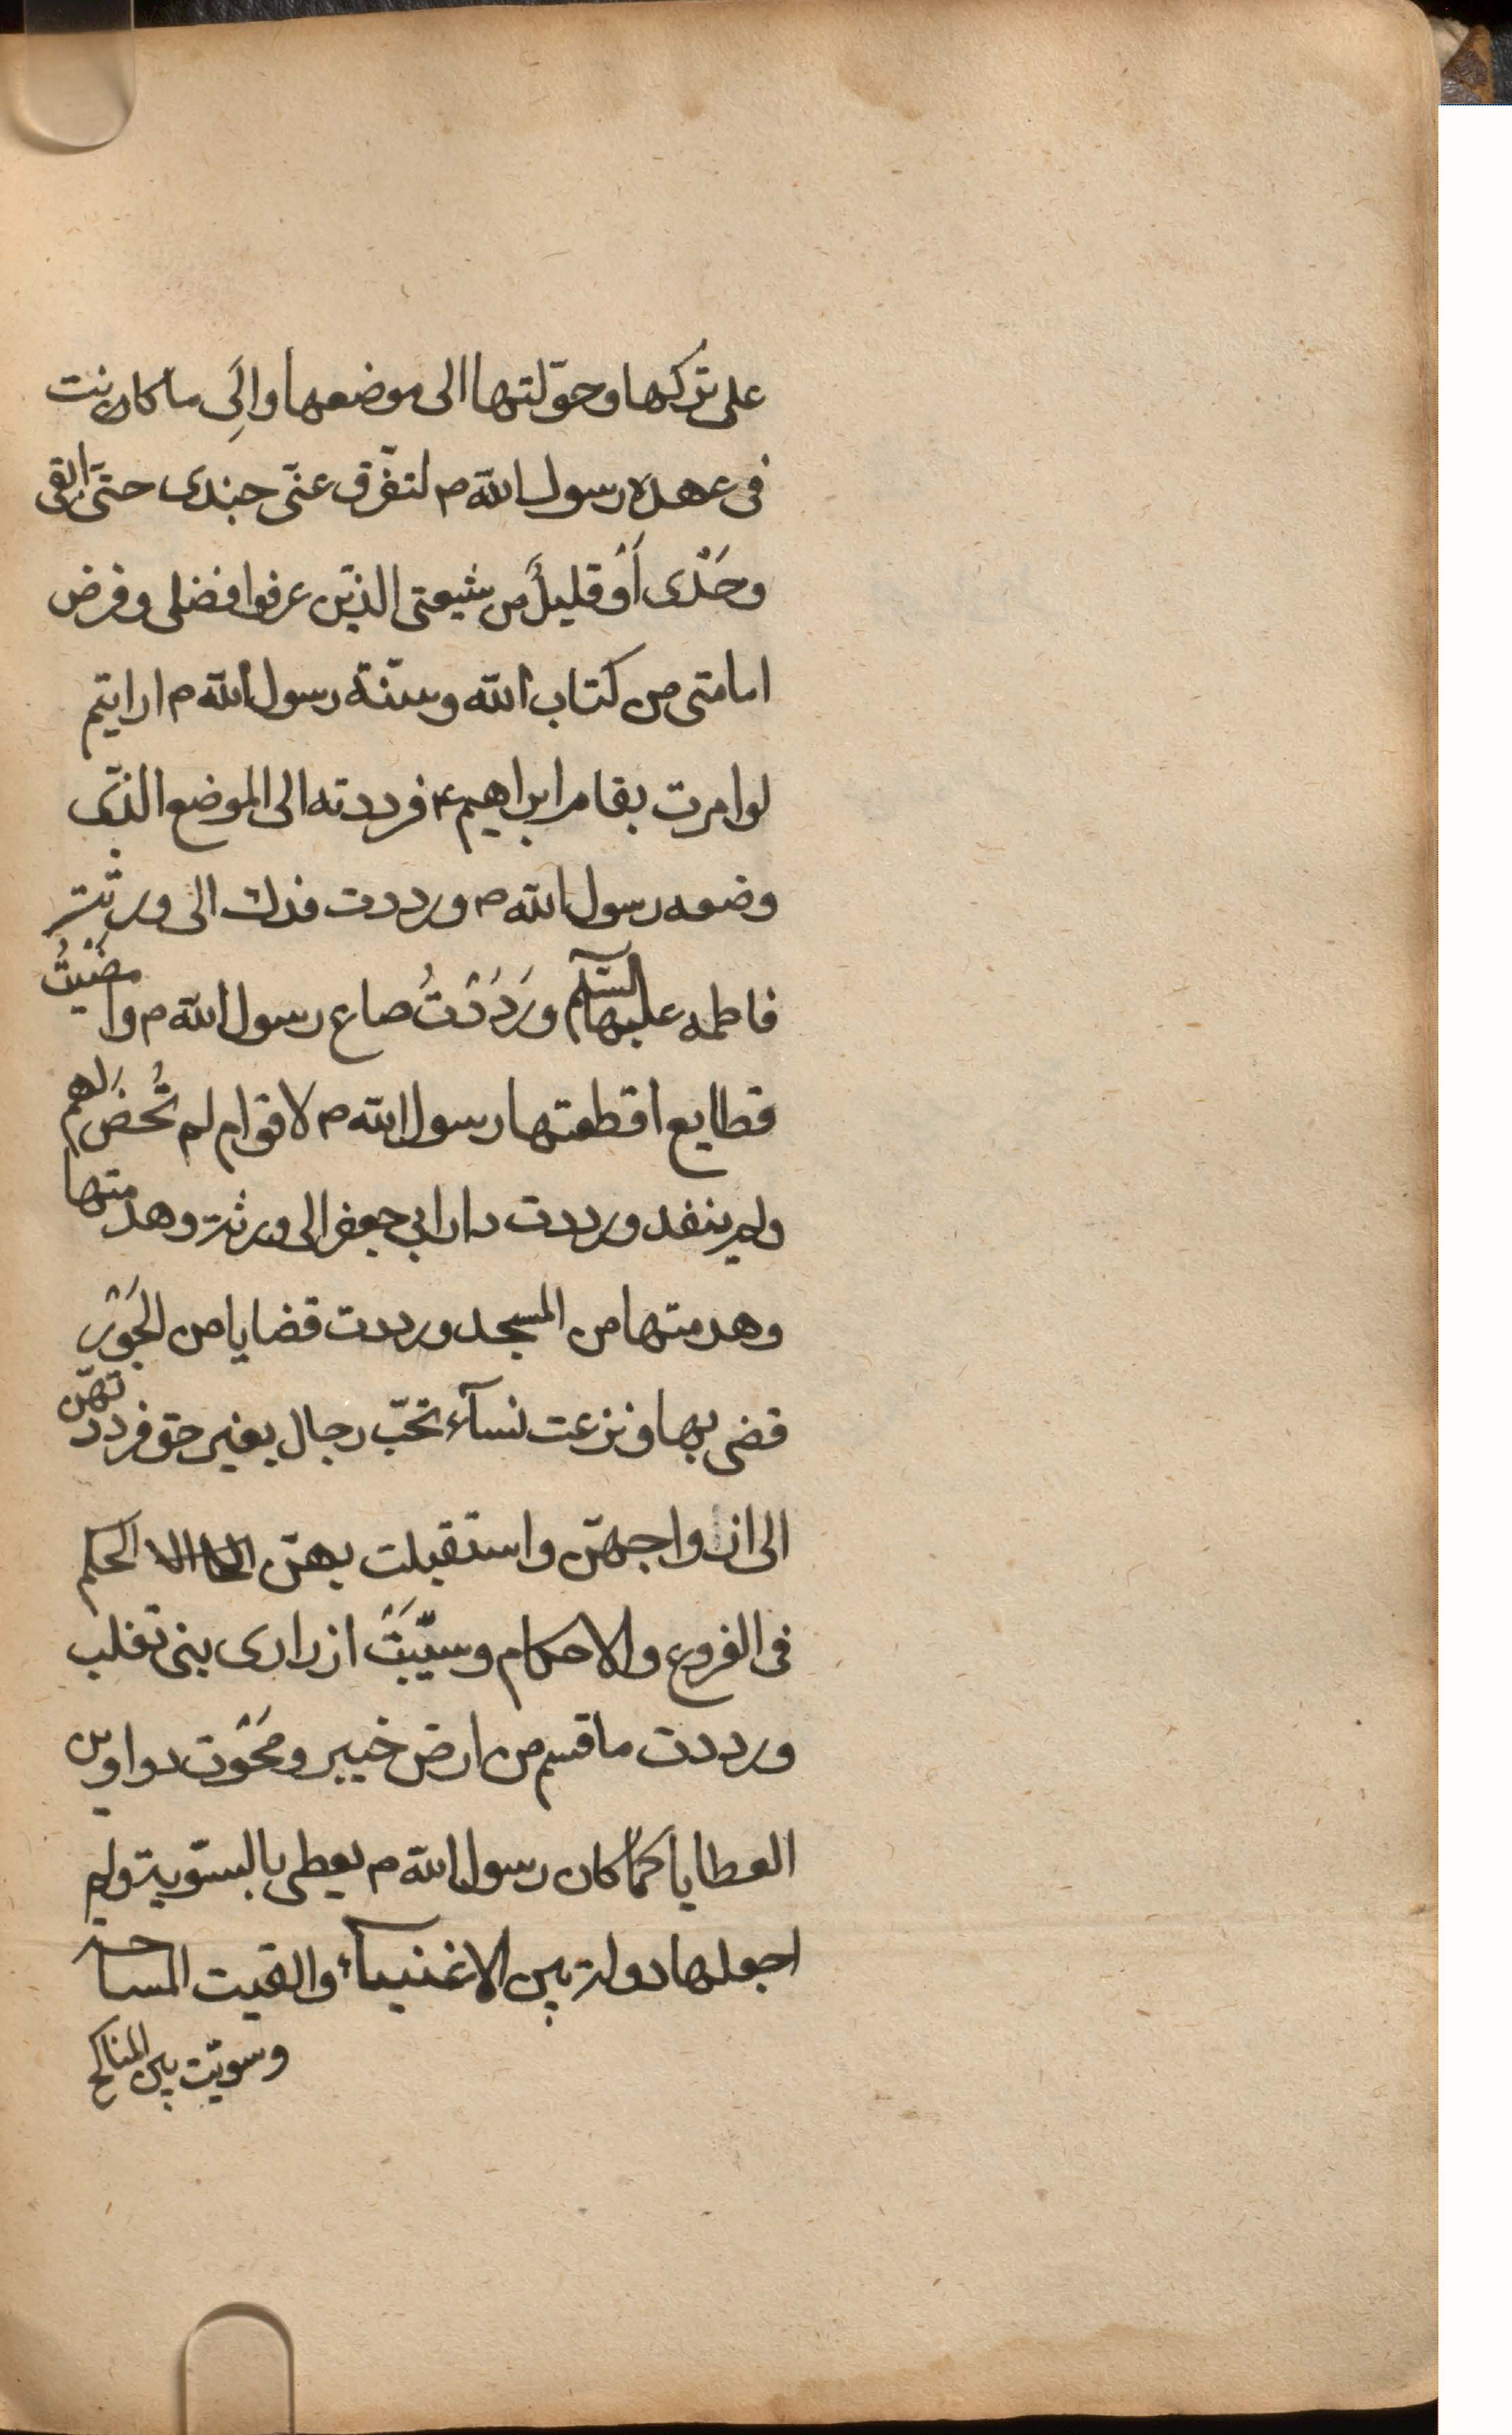 على تركها وحوّلتها الى موضعها والَى ما كانت
فى عهده رسول الله ص لتفّرق عنّى جندى حتّى ابقى
وحَدْى أوْ قليلٌ من شيعتى الذّين عرفوا فضلى وفرض
امامتى من كتاب الله وسنّة رسول الله ص ارايتم
لو امرت بمقام ابراهيم ع فرددته الى الموضع الذّى
وضعه رسول الله ص ورددت فدك الى ورثة
فاطمه عليها السّلم ورَدَدْتُ صاع رسول الله ص وامضَيْتُ
قطايع اقطعتها رسول الله ص لاقوام لم تُحضَ لهم
ولم ينفد ورددت دار ابى جعفر الى ورثة وهدمتها
وهدمتها من المسجد ورددت قضايا من الجَوْر
قضى بها ونزعت نسآء تحّب رجال بغير حق فرددتهّن
الى ازواجهّن واستقبلت بهّن الحكم
فى الفروع والاحكام وسيّبَتْ ازرارى بنى تغلب
ورددت ما قسم من ارض خيبر ومَحَوْت دواوين
العطايا كَمٰا كان رسول الله ص يعطى بالسّوية ولم
اجعلها دولة بين الاغنيآء والقيت المساحة
وسوّيت بين المناكح